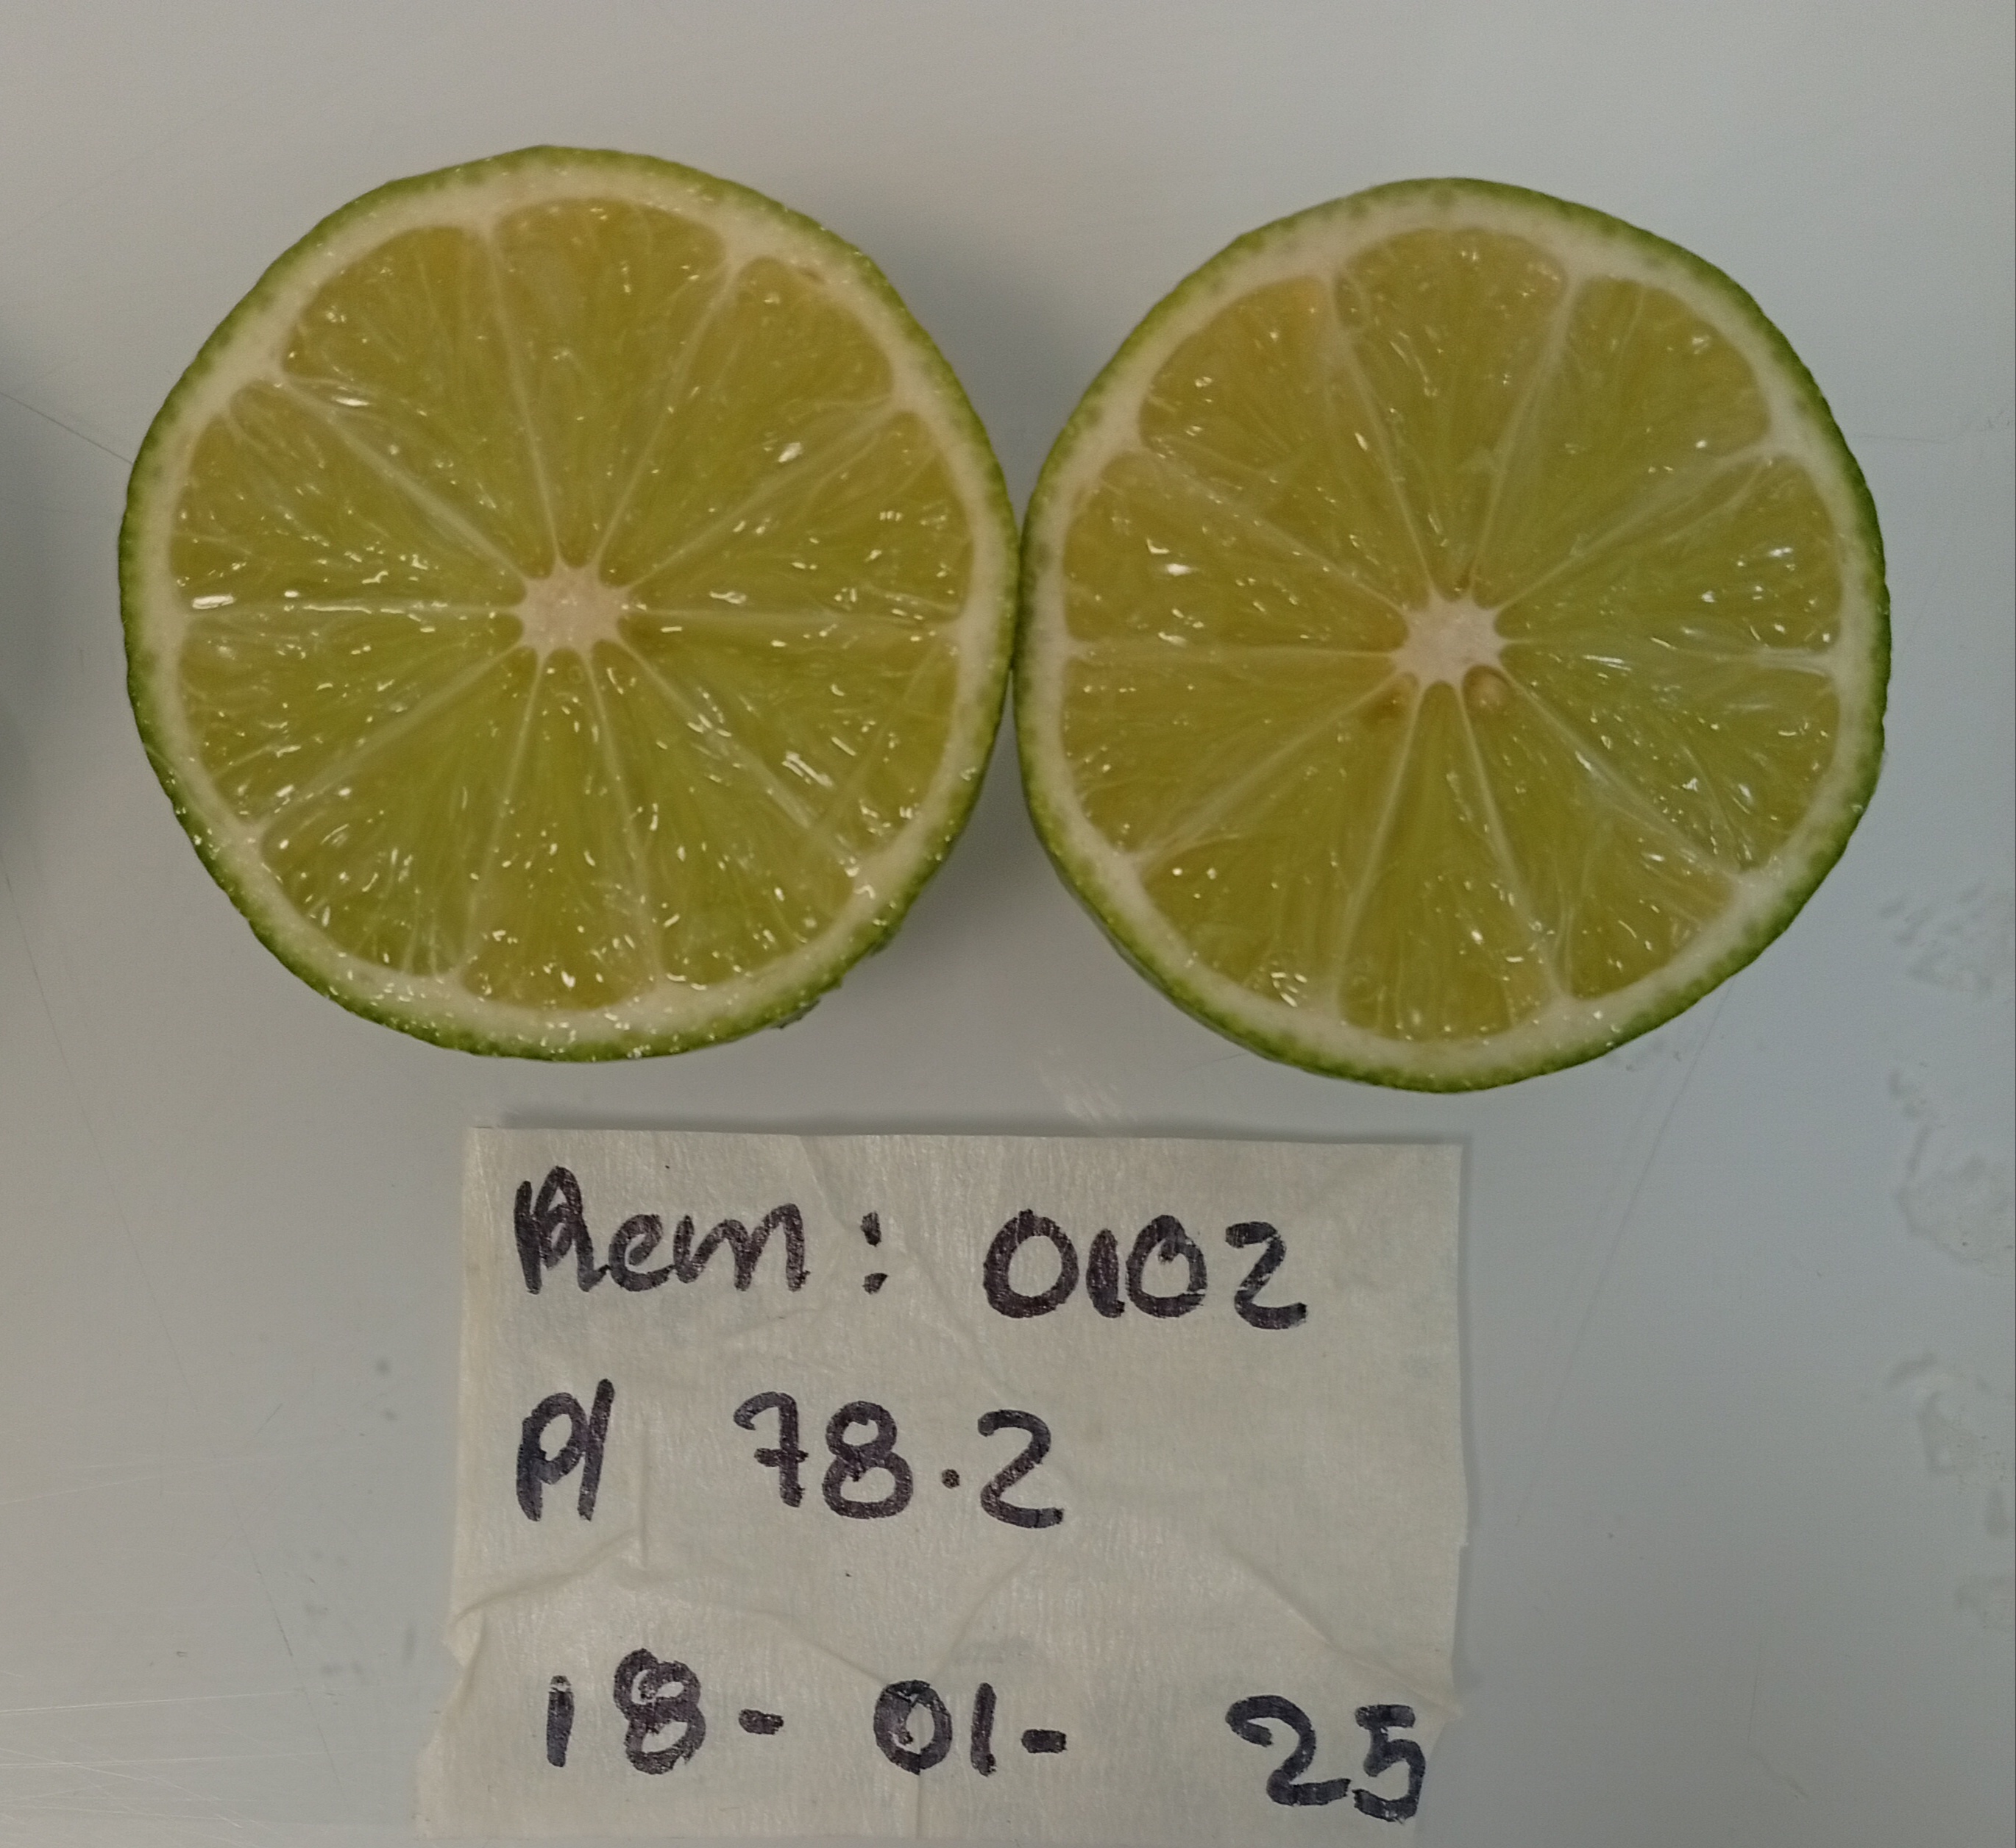 Rem: 0102
P/ 78.2
18-01-25